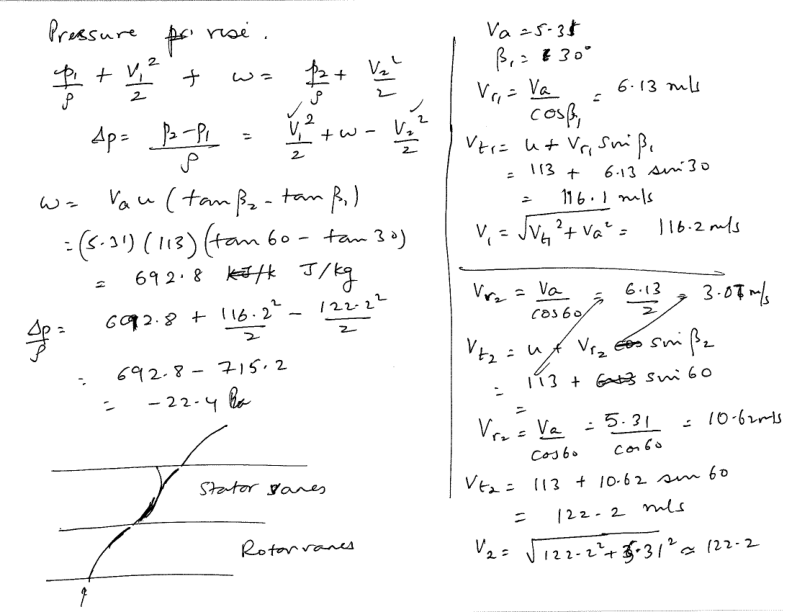 Pressure rise.
p₁/ρ + V₁²/2 + w = p₂/ρ + V₂²/2
Δp = (p₂-p₁)/ρ = V₁²/2 + w - V₂²/2
w = Va u (tan β₂ - tan β₁)
= (5.31) (113) (tan 60 - tan 30)
= 692.8 J/kg
Δp/ρ = 692.8 + 116.2²/2 - 122.2²/2
= 692.8 - 715.2
= -22.4
Stator vanes
Rotor vanes
Va = 5.31
β₁ = 30°
Vr₁ = Va/cosβ₁ = 6.13 m/s
Vt₁ = u + Vr₁ sin β₁
= 113 + 6.13 sin 30
= 116.1 m/s
V₁ = √(Vt₁² + Va²) = 116.2 m/s
Vr₂ = Va/cos60 = 6.13/2 = 3.07 m/s
Vt₂ = u + Vr₂ sin β₂
= 113 + sin 60
=
Vr₂ = Va/cos60 = 5.31/cos60 = 10.62 m/s
Vt₂ = 113 + 10.62 sin 60
= 122.2 m/s
V₂ = √(122.2² + 5.31²) ≈ 122.2